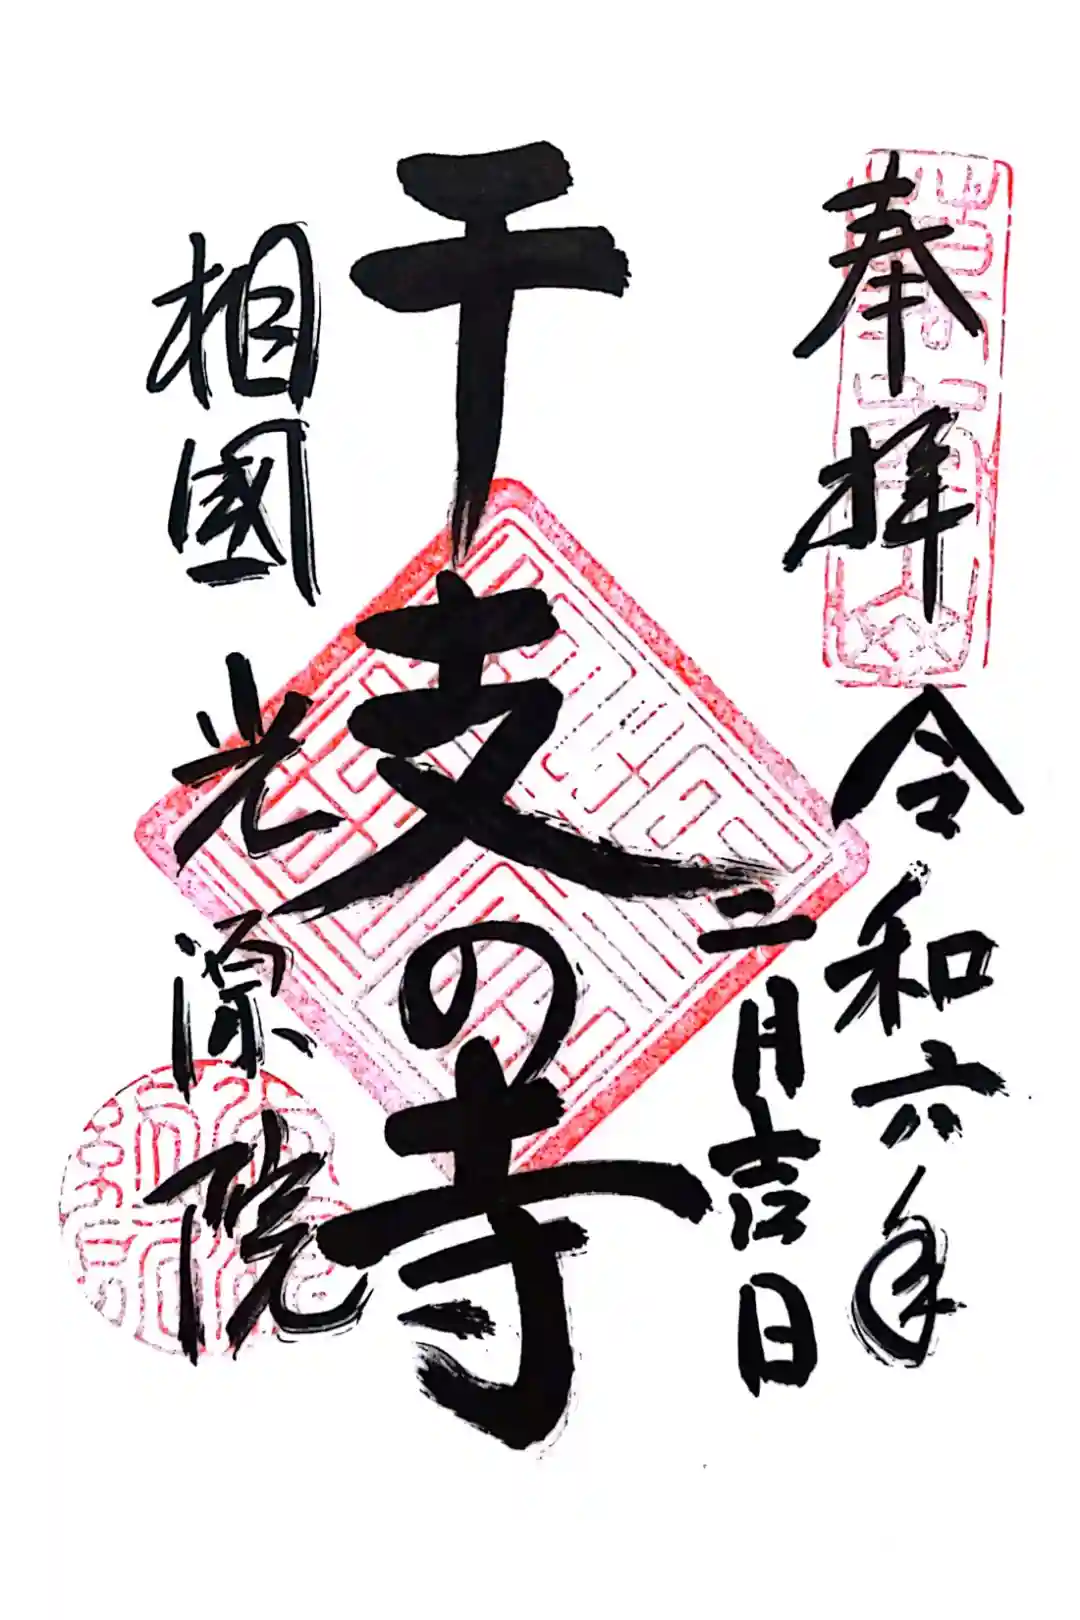 奉拝
令和六年
二月吉日
干支の寺
相國
光源院